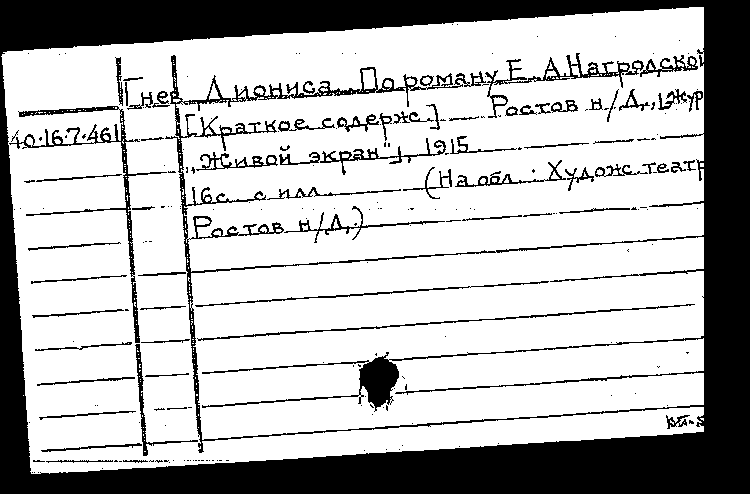 Гнев Диониса. По роману Е. А. Нагродской
40.16.7.461
[Краткое содерж.] Ростов н/Д., [Жур
„Живой экран"], 1915.
16с. с илл. (На обл.: Худож. театр
Ростов н/Д.)